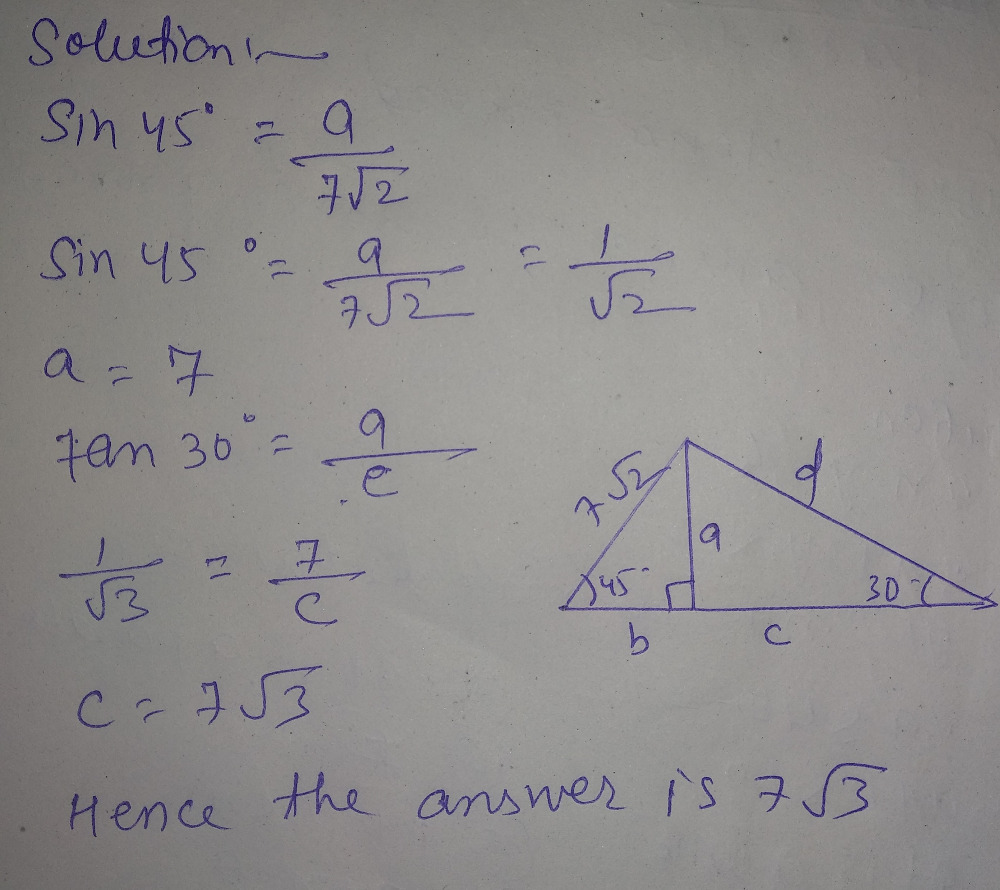 Solution:~
Sin 45° = a/7√2
Sin 45° = a/7√2 = 1/√2
a = 7
tan 30° = a/c
1/√3 = 7/c
c = 7√3
Hence the answer is 7√3
7√2
d
a
45°
30°
b
c